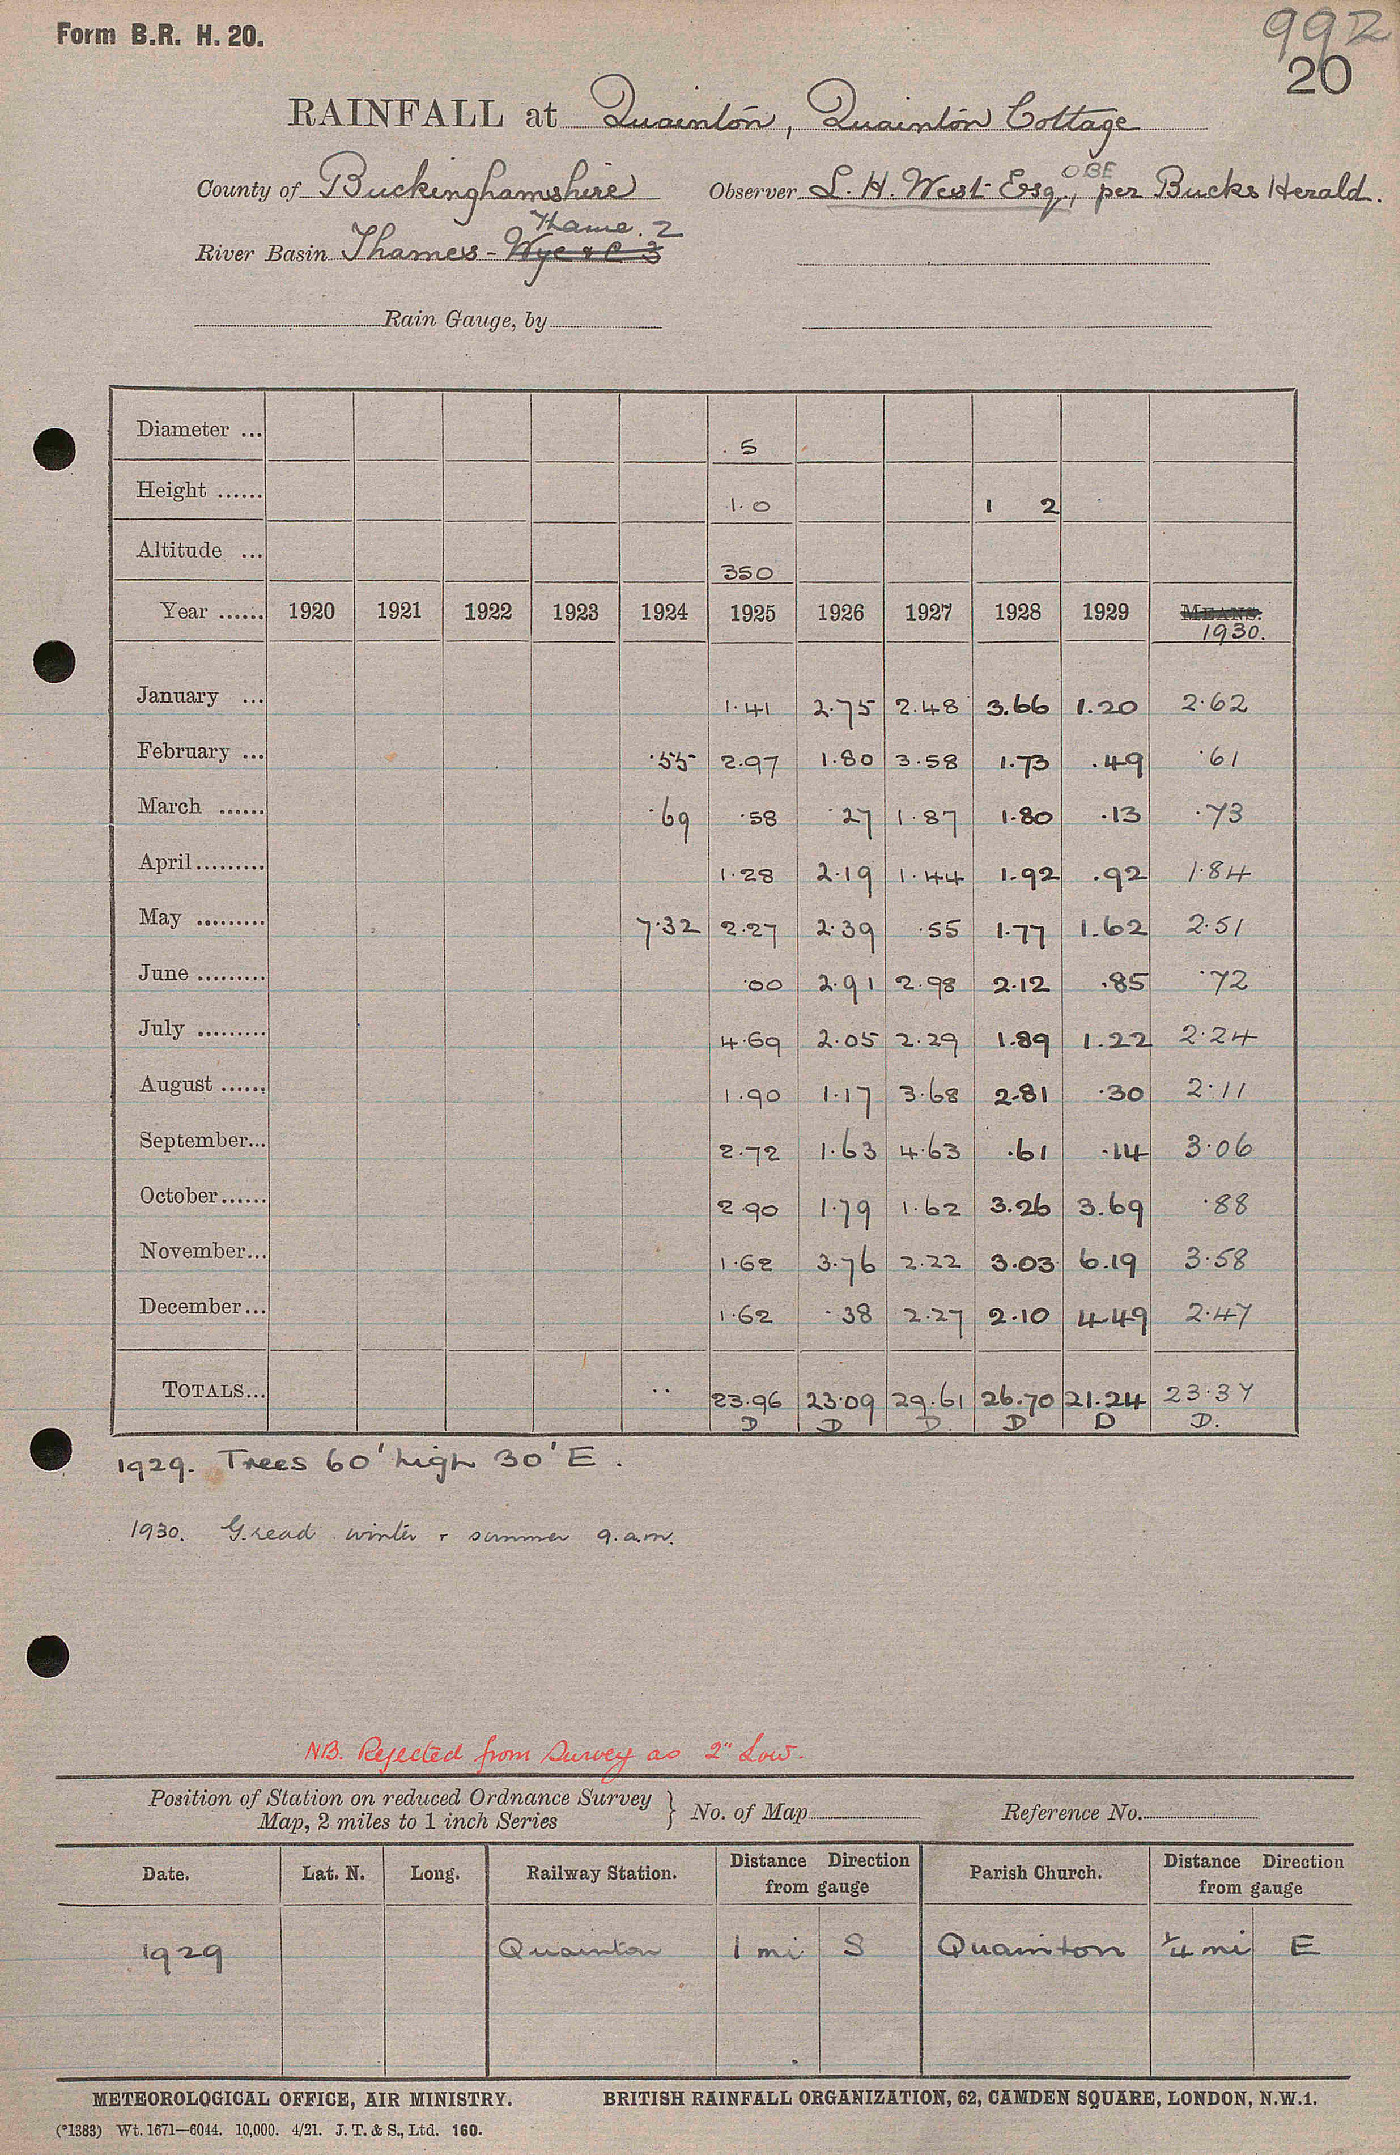 Form B.R. H. 20.
992
20
RAINFALL at Quainton, Quainton Cottage
County of Buckinghamshire Observer L. H. West Esq., OBE per Bucks Herald.
Thame. 2
River Basin Thames - Wye & C 3
Rain Gauge, by
Diameter ... 5
Height ...... 1. 0 1 2
Altitude ... 350
Year ...... 1920 1921 1922 1923 1924 1925 1926 1927 1928 1929 MEANS.
1930.
January ... 1.41 2.75 2.48 3.66 1.20 2.62
February ... .55 2.97 1.80 3.58 1.73 .49 .61
March ...... .69 .58 .27 1.87 1.80 .13 .73
April......... 1.28 2.19 1.44 1.92 .92 1.84
May ......... 7.32 2.27 2.39 .55 1.77 1.62 2.51
June ......... .00 2.91 2.98 2.12 .85 .72
July ......... 4.69 2.05 2.29 1.89 1.22 2.24
August ...... 1.90 1.17 3.68 2.81 .30 2.11
September... 2.72 1.63 4.63 .61 .14 3.06
October...... 2.90 1.79 1.62 3.26 3.69 .88
November... 1.62 3.76 2.22 3.03 6.19 3.58
December... 1.62 .38 2.27 2.10 4.49 2.47
TOTALS... .. 23.96 23.09 29.61 26.70 21.24 23.37
D D D. D D D.
1929. Trees 60' high 30' E.
1930. G. read winter & summer 9.a.m.
NB. Rejected from Survey as 2" Low.
Position of Station on reduced Ordnance Survey
Map, 2 miles to 1 inch Series } No. of Map Reference No.
Date. Lat. N. Long. Railway Station. Distance Direction from gauge Parish Church. Distance Direction from gauge
1929 Quainton 1 mi S Quainton ¼ mi E
METEOROLOGICAL OFFICE, AIR MINISTRY. BRITISH RAINFALL ORGANIZATION, 62, CAMDEN SQUARE, LONDON, N.W.1.
(*1383) Wt. 1671—6044. 10,000. 4/21. J. T. & S., Ltd. 160.